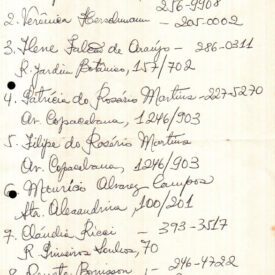 256-9908
2. Verônica Herschmann - 205-0002
3. Ilene Falcão de Araújo - 286-0311
R. Jardim Botânico, 157/702
4. Patrícia do Rosário Martins - 227-5270
Av. Copacabana, 1246/903
5. Filipe do Rosário Martins
Av. Copacabana, 1246/903
6. Mourício Alvarez Campos
Alexandrina, 100/201
7. Cláudia Ricci - 393-3517
R. 70
8. Renata - 246-4722